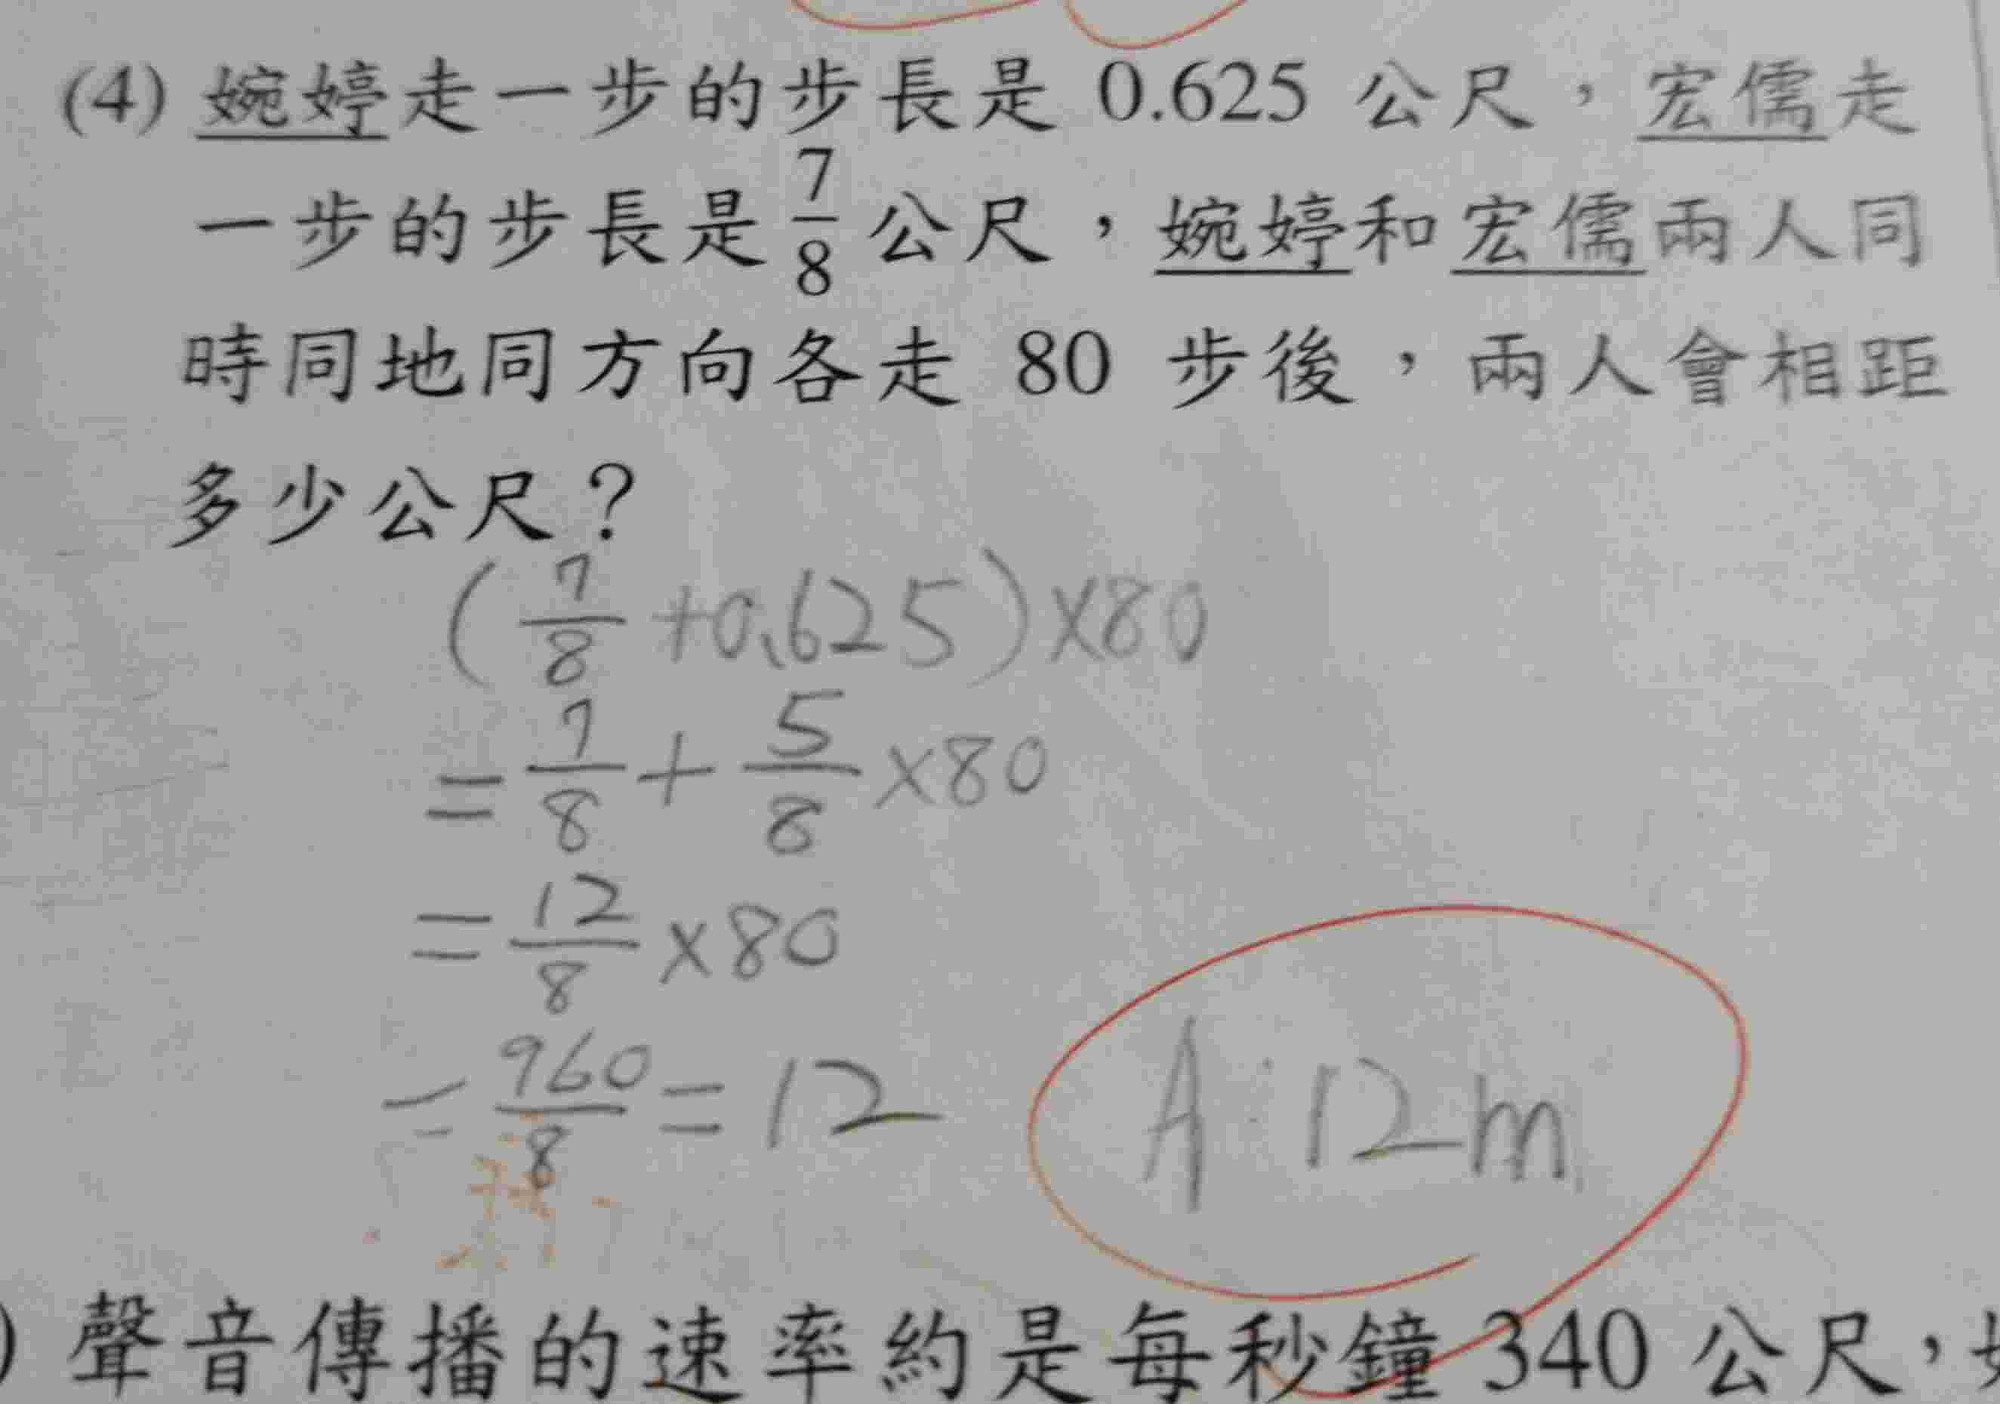 (4) 婉婷走一步的步長是 0.625 公尺，宏儒走
一步的步長是 7/8 公尺，婉婷和宏儒兩人同
時同地同方向各走 80 步後，兩人會相距
多少公尺？
(7/8 + 0.625) × 80
= 7/8 + 5/8 × 80
= 12/8 × 80
= 960/8 = 12
A: 12m
) 聲音傳播的速率約是每秒鐘 340 公尺，